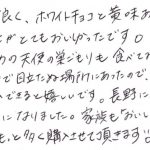 良く、ホワイトチョコと黄味あ
とてもおいしかったです。
の天使の巣ごもりも食べてみ
で目立たぬ場所にあったので、
できると嬉しいです。長野に
になりました。家族も"おいし
もっと多く購入させて頂きます